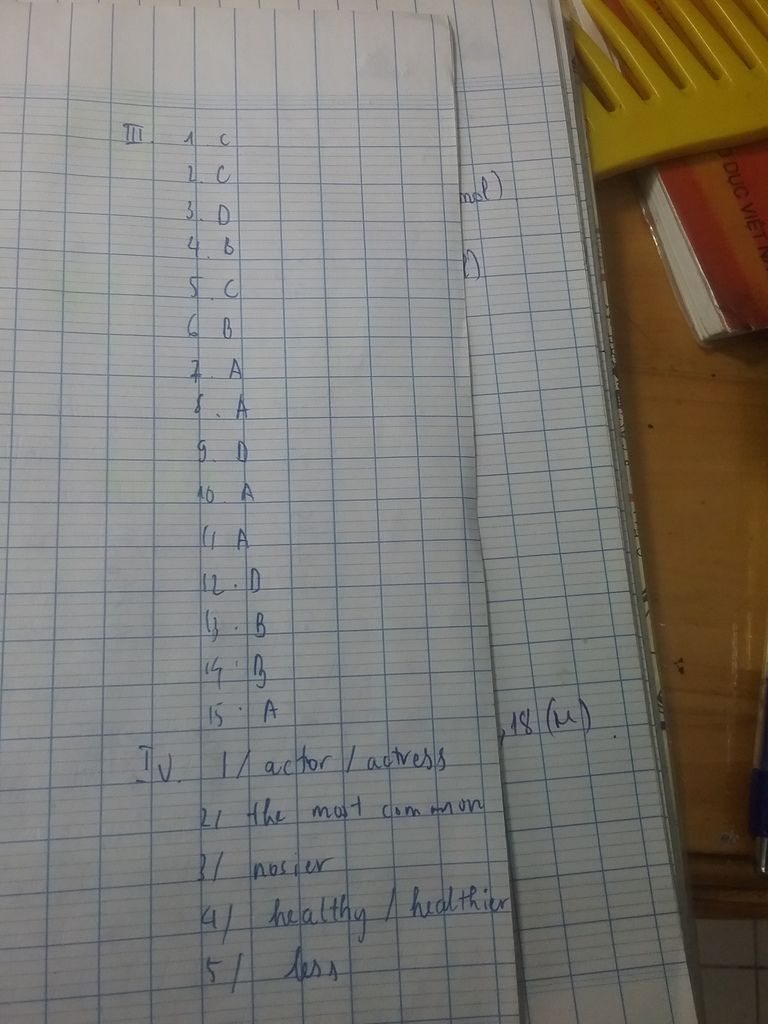 III. 1. C
2. C
3. D
4. B
5. C
6. B
7. A
8. A
9. D
10. A
11 A
12. D
13. B
14. B
15. A
IV. 1/ actor / actress
2/ the most common
3/ nosier
4/ healthy / healthier
5/ less
mol)
l)
,18 (M)
O DỤC VIỆT NA